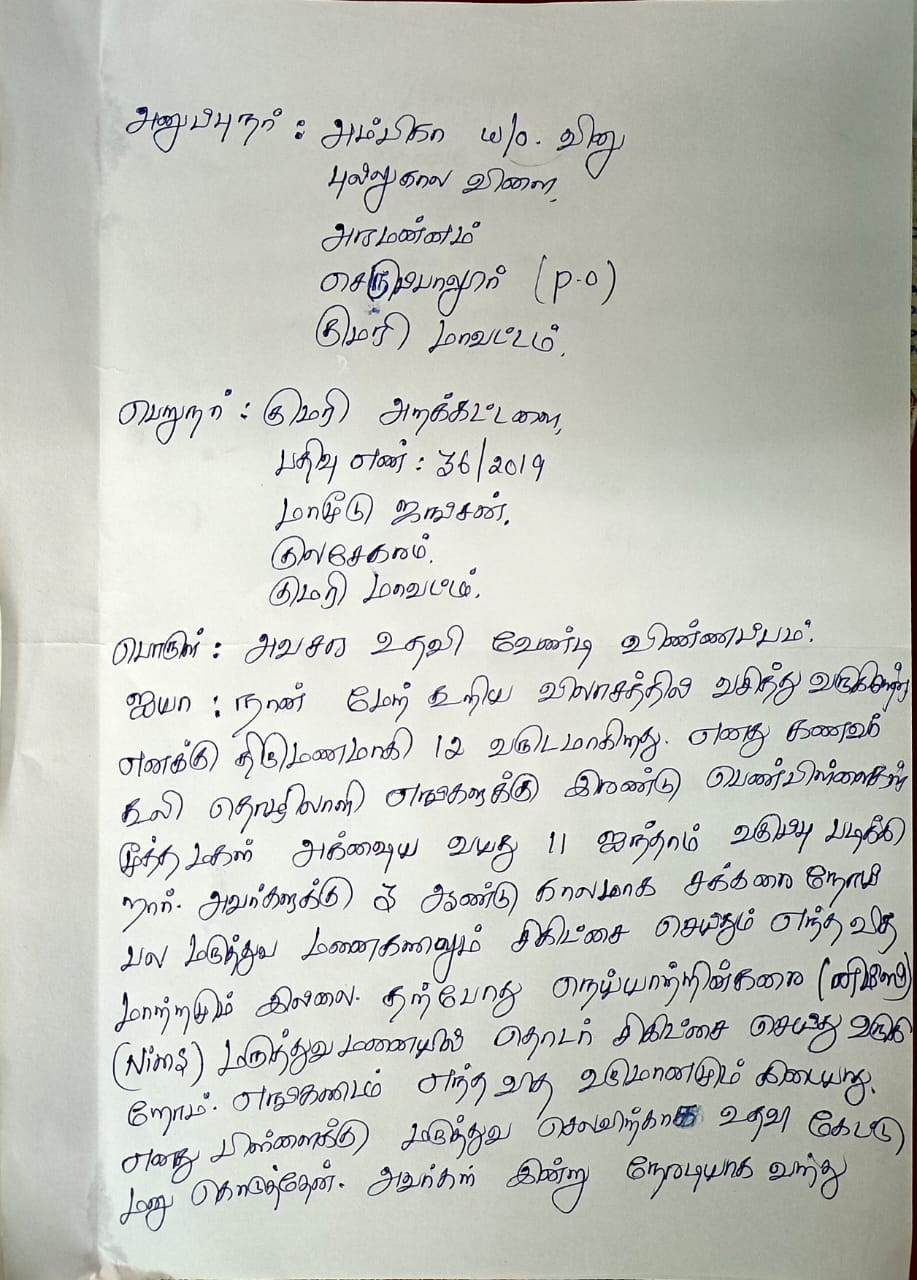 அனுப்புநர் : அம்பிகா w/o. வினு
புல்லுகால விளை,
அரமன்னம்
செருப்பாலூர் (P.O)
குமரி மாவட்டம்.
பெறுநர் : குமரி அறக்கட்டளை,
பதிவு எண் : 36/2019
மாமூடு ஜங்சன்.
குலசேகரம்.
குமரி மாவட்டம்.
பொருள் : அவசர உதவி வேண்டி விண்ணப்பம்.
ஐயா : நான் மேற் கூறிய விலாசத்தில் வசித்து வருகிறேன்
எனக்கு திருமணமாகி 12 வருடமாகிறது. எனது கணவர்
கூலி தொழிலாளி எங்களுக்கு இரண்டு பெண்பிள்ளைகள்
மூத்த மகள் அக்ஷய வயது 11 ஐந்தாம் வகுப்பு படிக்கி
றாள். அவர்களுக்கு 3 ஆண்டு காலமாக சக்கரை நோய்
பல மருத்துவ மனைகளிலும் சிகிட்சை செய்தும் எந்த வித
மாற்றமும் இல்லை. தற்போது நெய்யாற்றின்கரை (நிம்ஸ்)
(Nims) மருத்துவ மனையில் தொடர் சிகிட்சை செய்து வருகி
றோம். எங்களிடம் எந்த வித வருமானமும் கிடையாது.
எனது பிள்ளைக்கு மருத்துவ செலவிற்காக உதவி கேட்டு
மனு கொடுத்தேன். அவர்கள் இன்று நேரடியாக வந்து